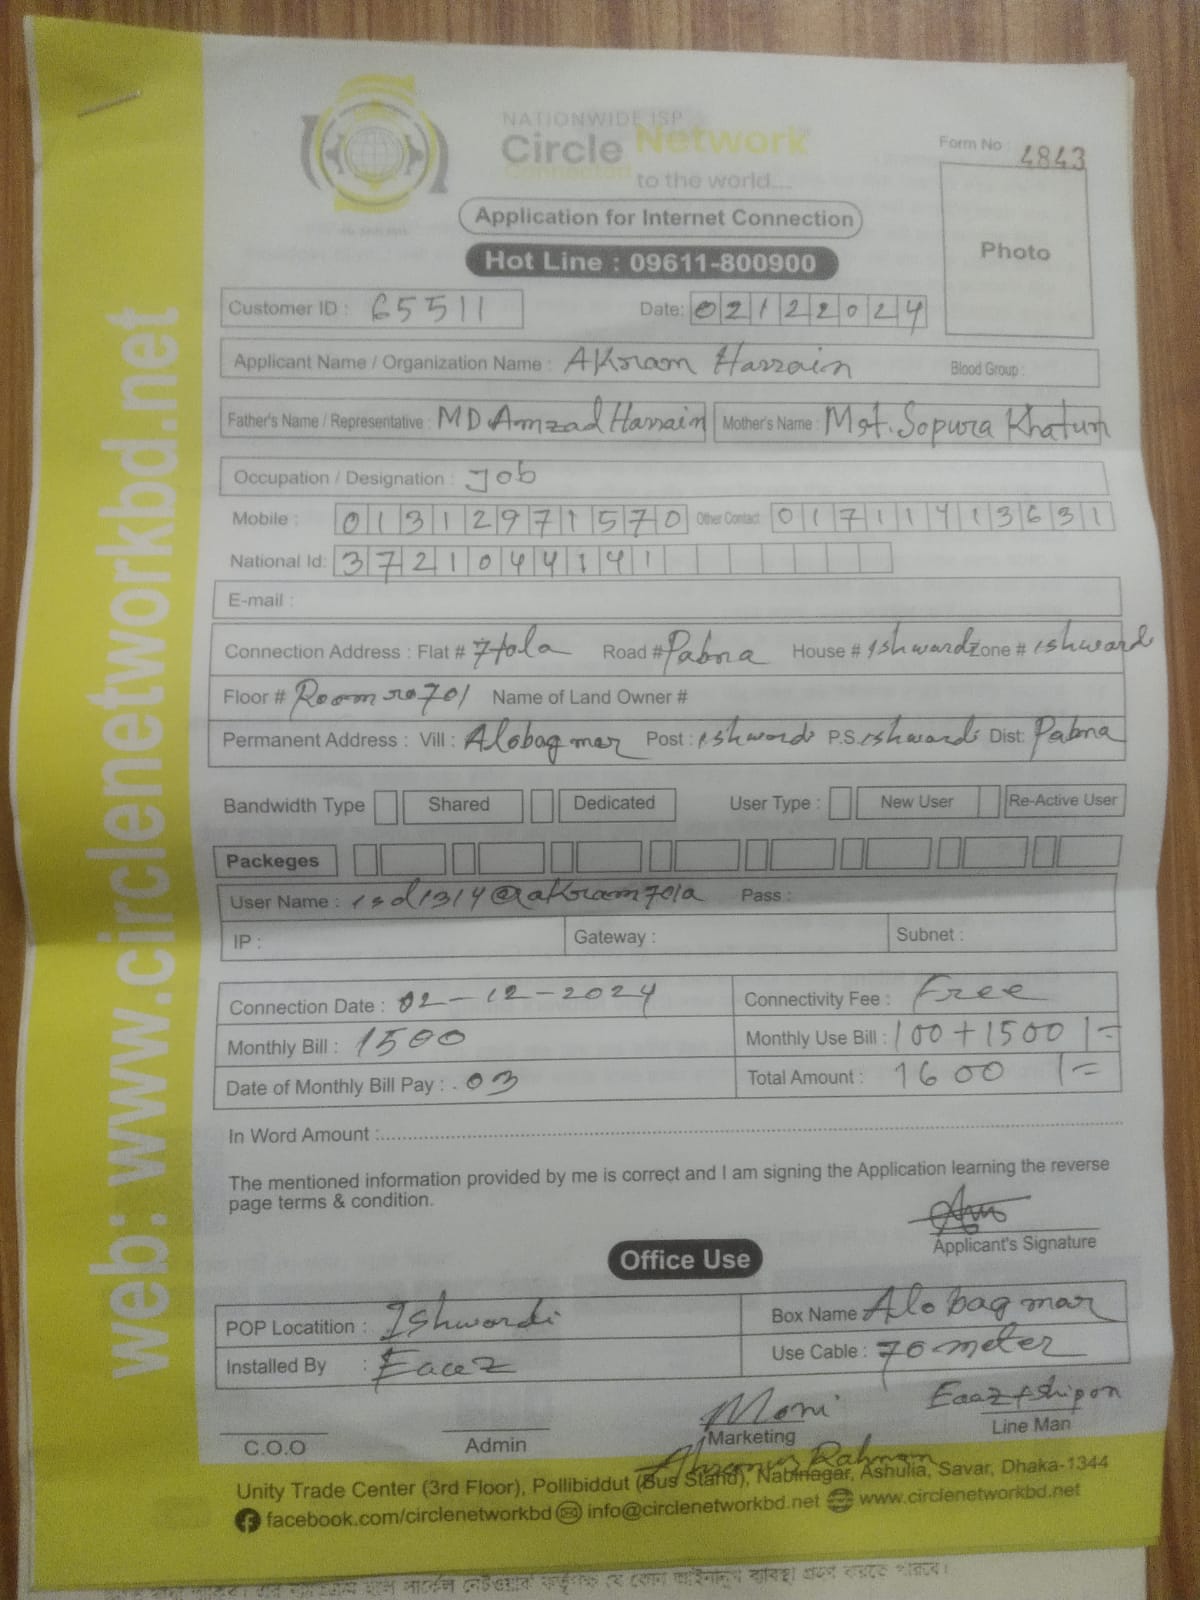 NATIONWIDE ISP
Circle Network
Connected to the world...
Form No : 4843
Application for Internet Connection
Photo
Hot Line : 09611-800900
Customer ID : 65511 Date: 02122024
Applicant Name / Organization Name : AKram Hassain Blood Group :
Father's Name / Representative : MD. Amzad Hassain Mother's Name : Mst. Sopura Khatun
Occupation / Designation : Job
Mobile : 01312971570 Other Contact 01711413631
National Id: 3721044141
E-mail :
Connection Address : Flat # 7tola Road # Pabna House # Ishwardi Zone # Ishwardi
Floor # Room no 701 Name of Land Owner #
Permanent Address : Vill : Alobag mar Post : Ishwardi P.S. Ishwardi Dist: Pabna
Bandwidth Type Shared Dedicated User Type : New User Re-Active User
Packeges
User Name : isd1314@akram701a Pass :
IP : Gateway : Subnet :
Connection Date : 02-12-2024 Connectivity Fee : Free
Monthly Bill : 1500 Monthly Use Bill : 100+1500/=
Date of Monthly Bill Pay : 03 Total Amount : 1600/=
In Word Amount :
The mentioned information provided by me is correct and I am signing the Application learning the reverse
page terms & condition.
Applicant's Signature
Office Use
POP Locatition : Ishwardi Box Name Alobag mar
Installed By : Eaaz Use Cable : 70 meter
Moni Eaaz+Shipon
C.O.O Admin Marketing Line Man
Rahman
Unity Trade Center (3rd Floor), Pollibiddut (Bus Stand), Nabinagar, Ashulia, Savar, Dhaka-1344
facebook.com/circlenetworkbd info@circlenetworkbd.net www.circlenetworkbd.net
web: www.circlenetworkbd.net